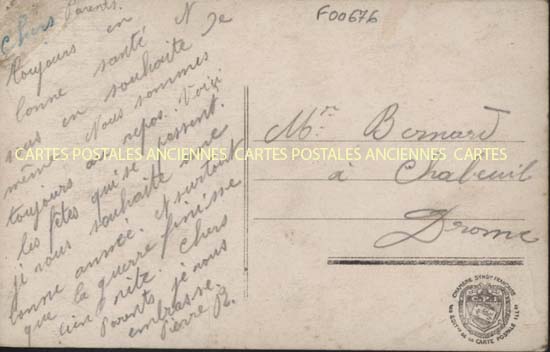 F00676
Chers Parents.
toujours en
bonne santé. N Je
vous en souhaite de
même. Nous sommes
toujours au repos. Voici
les fêtes qui se passent.
je vous souhaite une
bonne année. N surtout
que la guerre finisse
bien vite. Chers
Parents je vous
embrasse.
Pierre B.
Mr Bernard
à Chabeuil
Drome
CARTES POSTALES ANCIENNES CARTES POSTALES ANCIENNES CARTES
CHAMBRE SYNDle FRANÇAISE
DE LA CARTE POSTALE